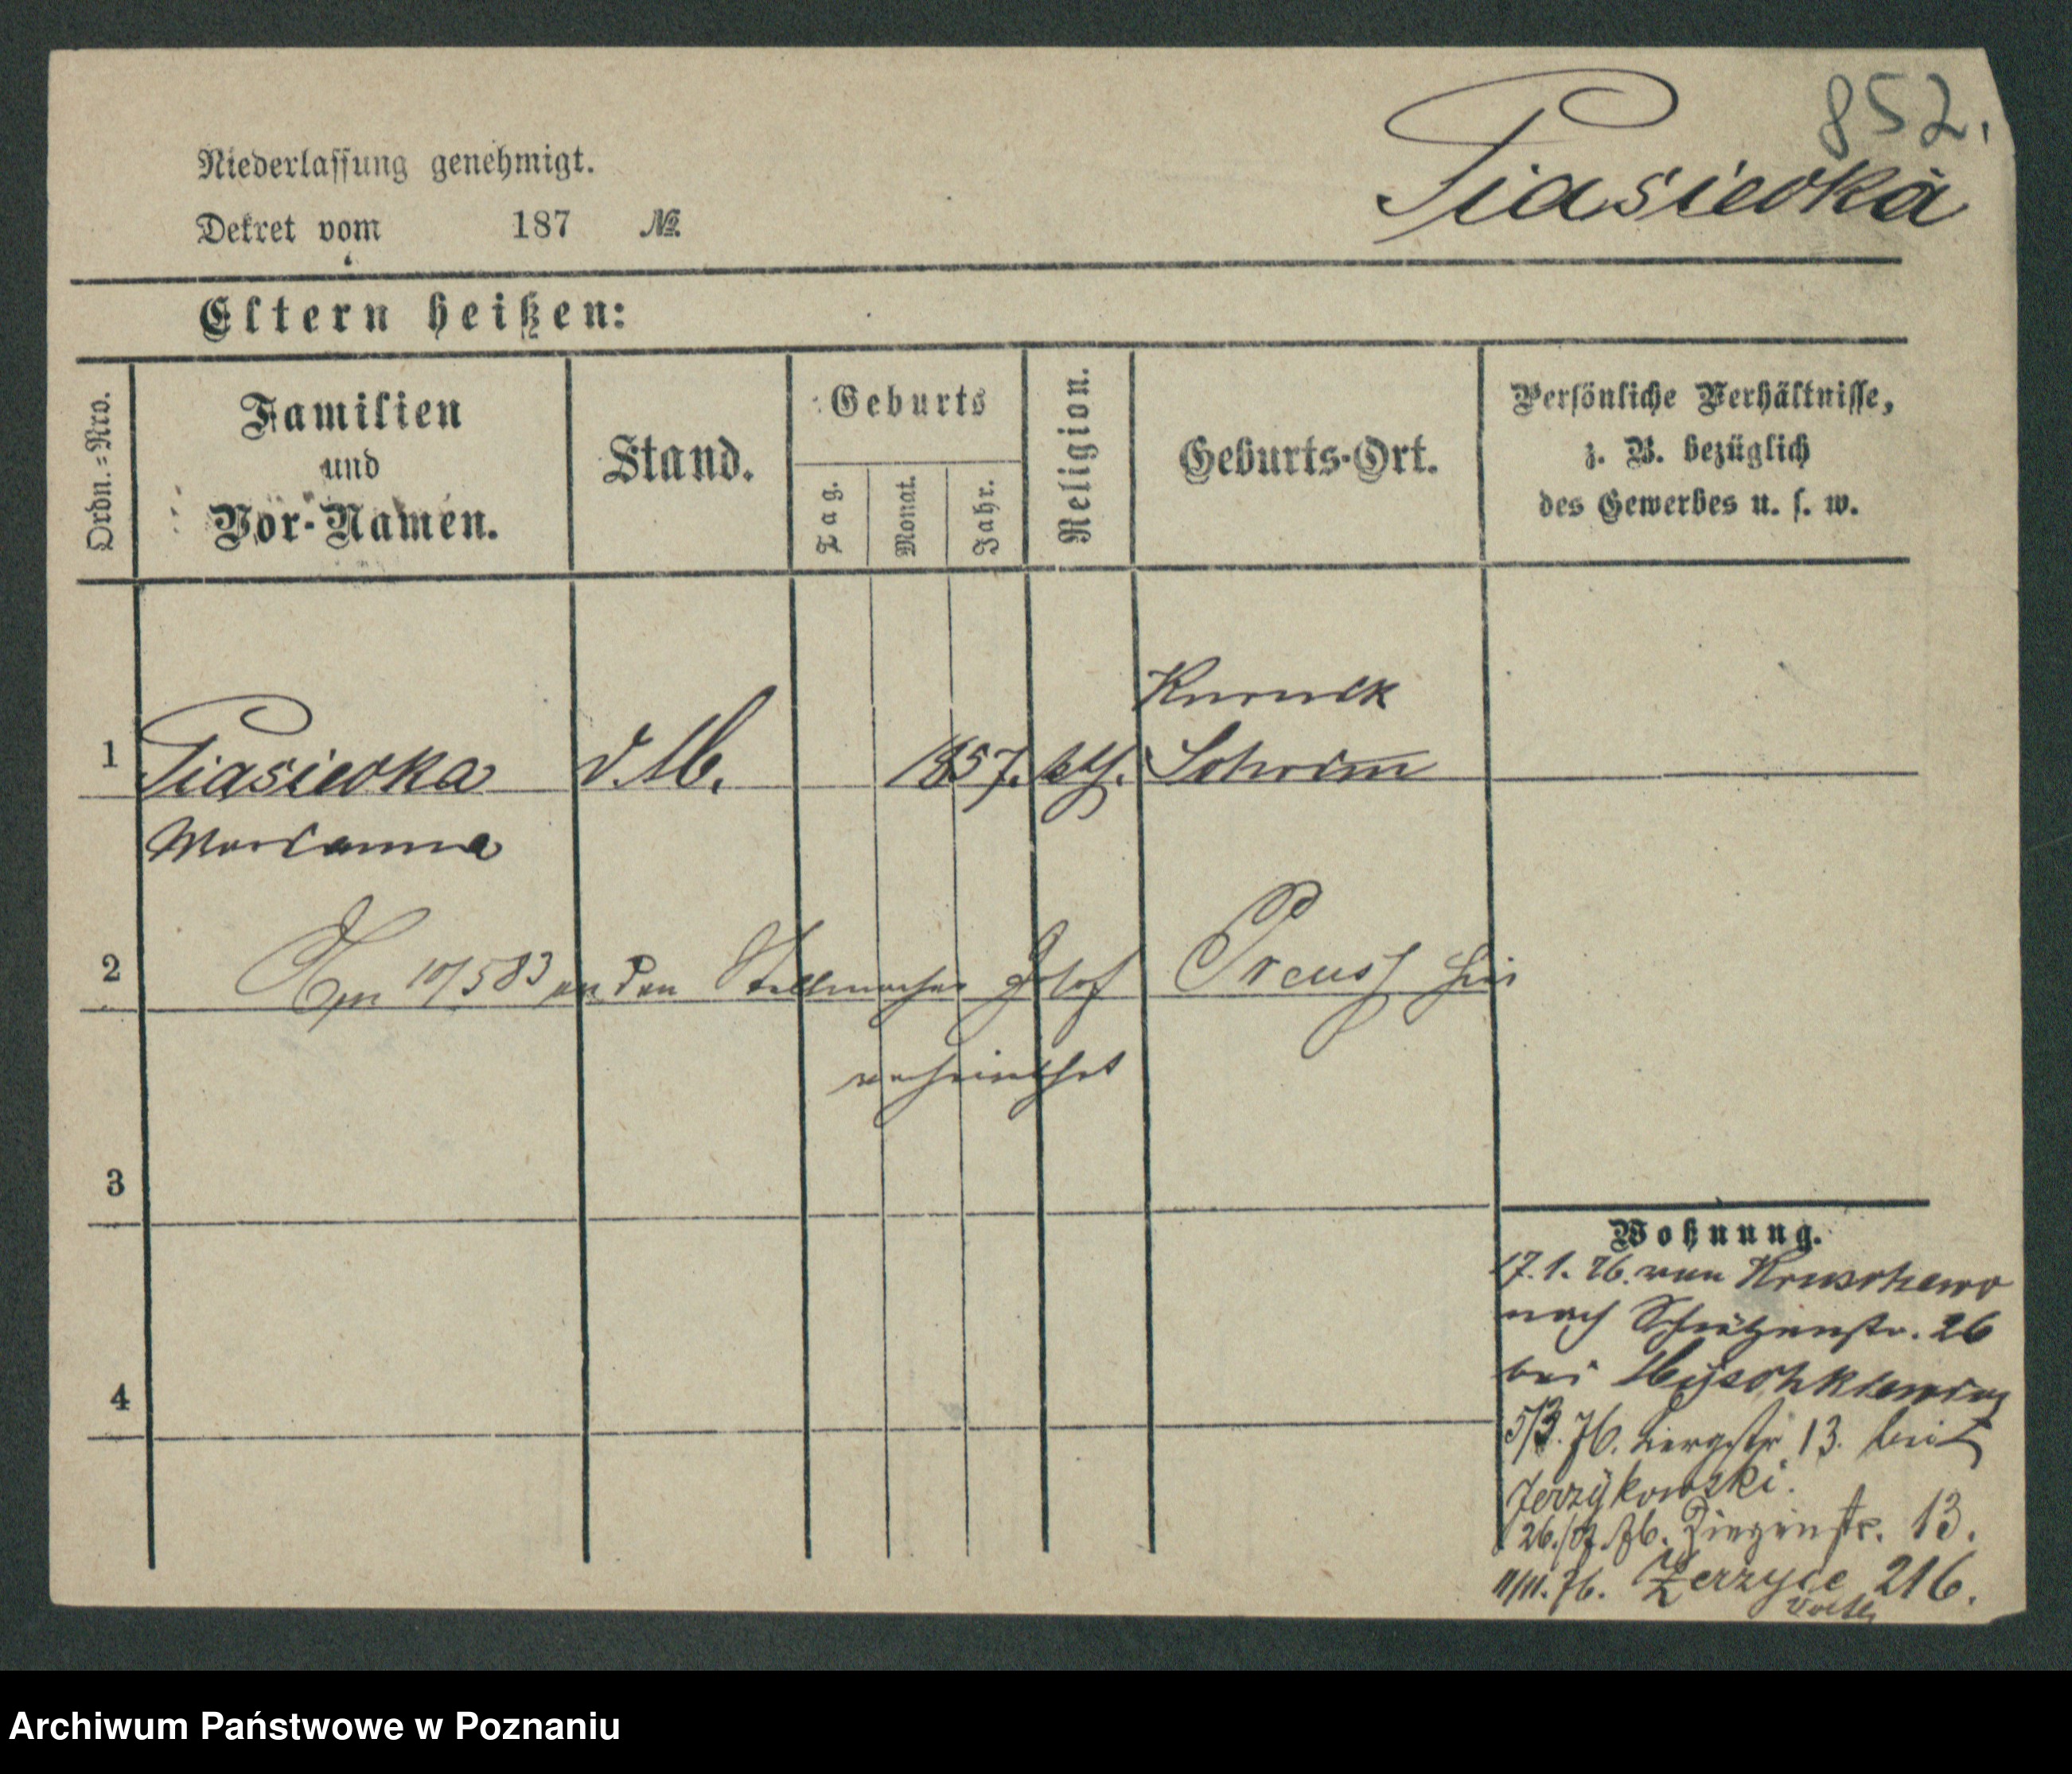 852.
Piasiecka
Niederlassung genehmigt.
Dekret vom 187 №.
Eltern heißen:
Ordn.=Nro.
Familien
und
Vor-Namen.
Stand.
Geburts
Tag.
Monat.
Jahr.
Religion.
Geburts-Ort.
Persönliche Verhältnisse,
z. B. bezüglich
des Gewerbes u. s. w.
Kurnik
1 Piasiecka d. M. 1857. kth. Schrim
Marianna
2 Am 10/5 83 an den Stellmacher Josef Preuss hier
verheirathet
3
4
Wohnung.
17.1.76. von Kruschewo
nach Schützenstr. 26
bei
5/3. 76. Bergstr 13. bei
Jerzykowski.
76. Ziegenstr. 13.
11/11. 76. Jerzyce 216.
Archiwum Państwowe w Poznaniu